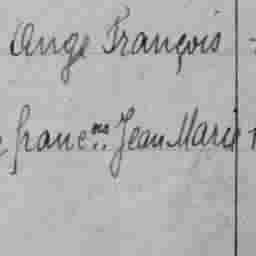 Ange François
franc.ᵐᵉ Jean Marie